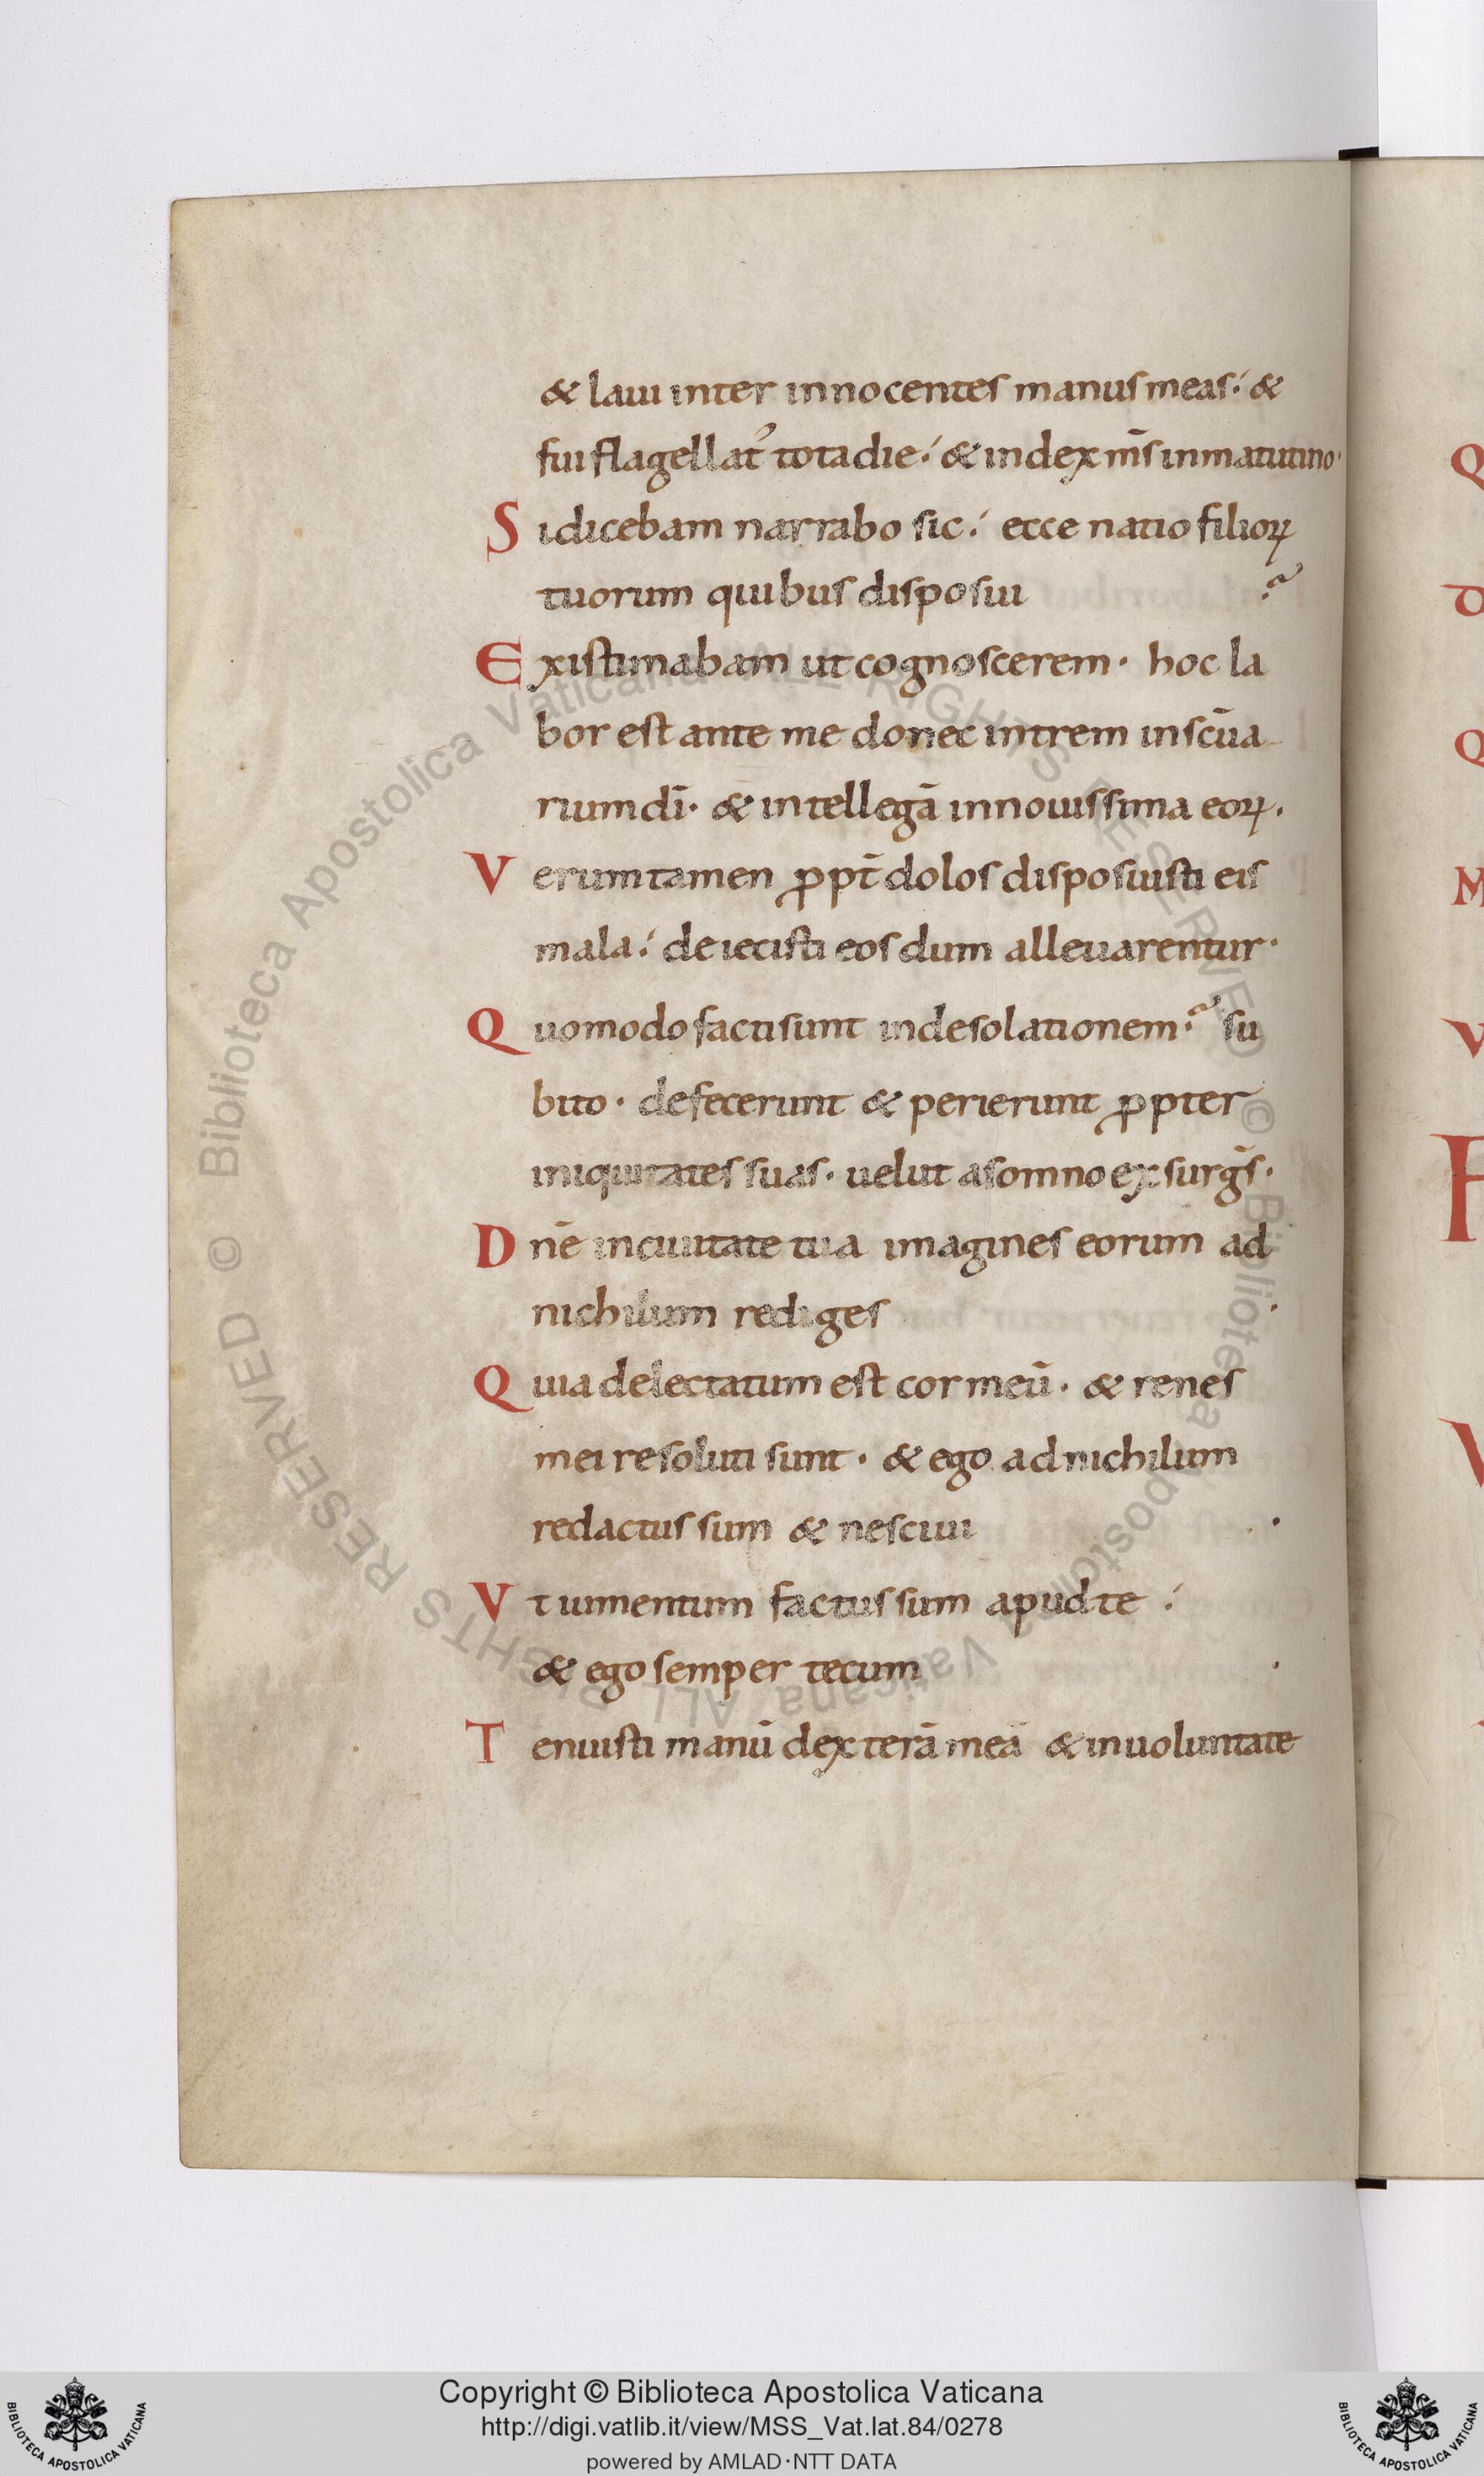 & laui inter innocentes manus meas. &
fui flagellat᾽ tota die. & index m̄s in matutino.
Si dicebam narrabo sic. ecce natio filioꝝ
tuorum quibus disposui
Existimabam ut cognoscerem. hoc la
bor est ante me donec intrem in sc̄ua
rium dī. & intellegā in nouissima eoꝝ.
Verumtamen ꝓpt̄ dolos disposuisti eis
mala. deiecisti eos dum alleuarentur.
Quomodo facti sunt in desolationem. su
bito. defecerunt & perierunt ꝓpter
iniquitates suas. uelut a somno exsurḡs.
Dn̄e in ciuitate tua imagines eorum ad
nichilum rediges.
Quia delectatum est cor meū. & renes
mei resoluti sunt. & ego ad nichilum
redactus sum & nesciui.
Vt iumentum factus sum apud te.
& ego semper tecum.
Tenuisti manū dexterā meā & in uoluntate
© Biblioteca Apostolica Vaticana ALL RIGHTS RESERVED © Biblioteca Apostolica Vaticana ALL RIGHTS RESERVED
Copyright © Biblioteca Apostolica Vaticana
http://digi.vatlib.it/view/MSS_Vat.lat.84/0278
powered by AMLAD·NTT DATA
BIBLIOTECA APOSTOLICA VATICANA
BIBLIOTECA APOSTOLICA VATICANA